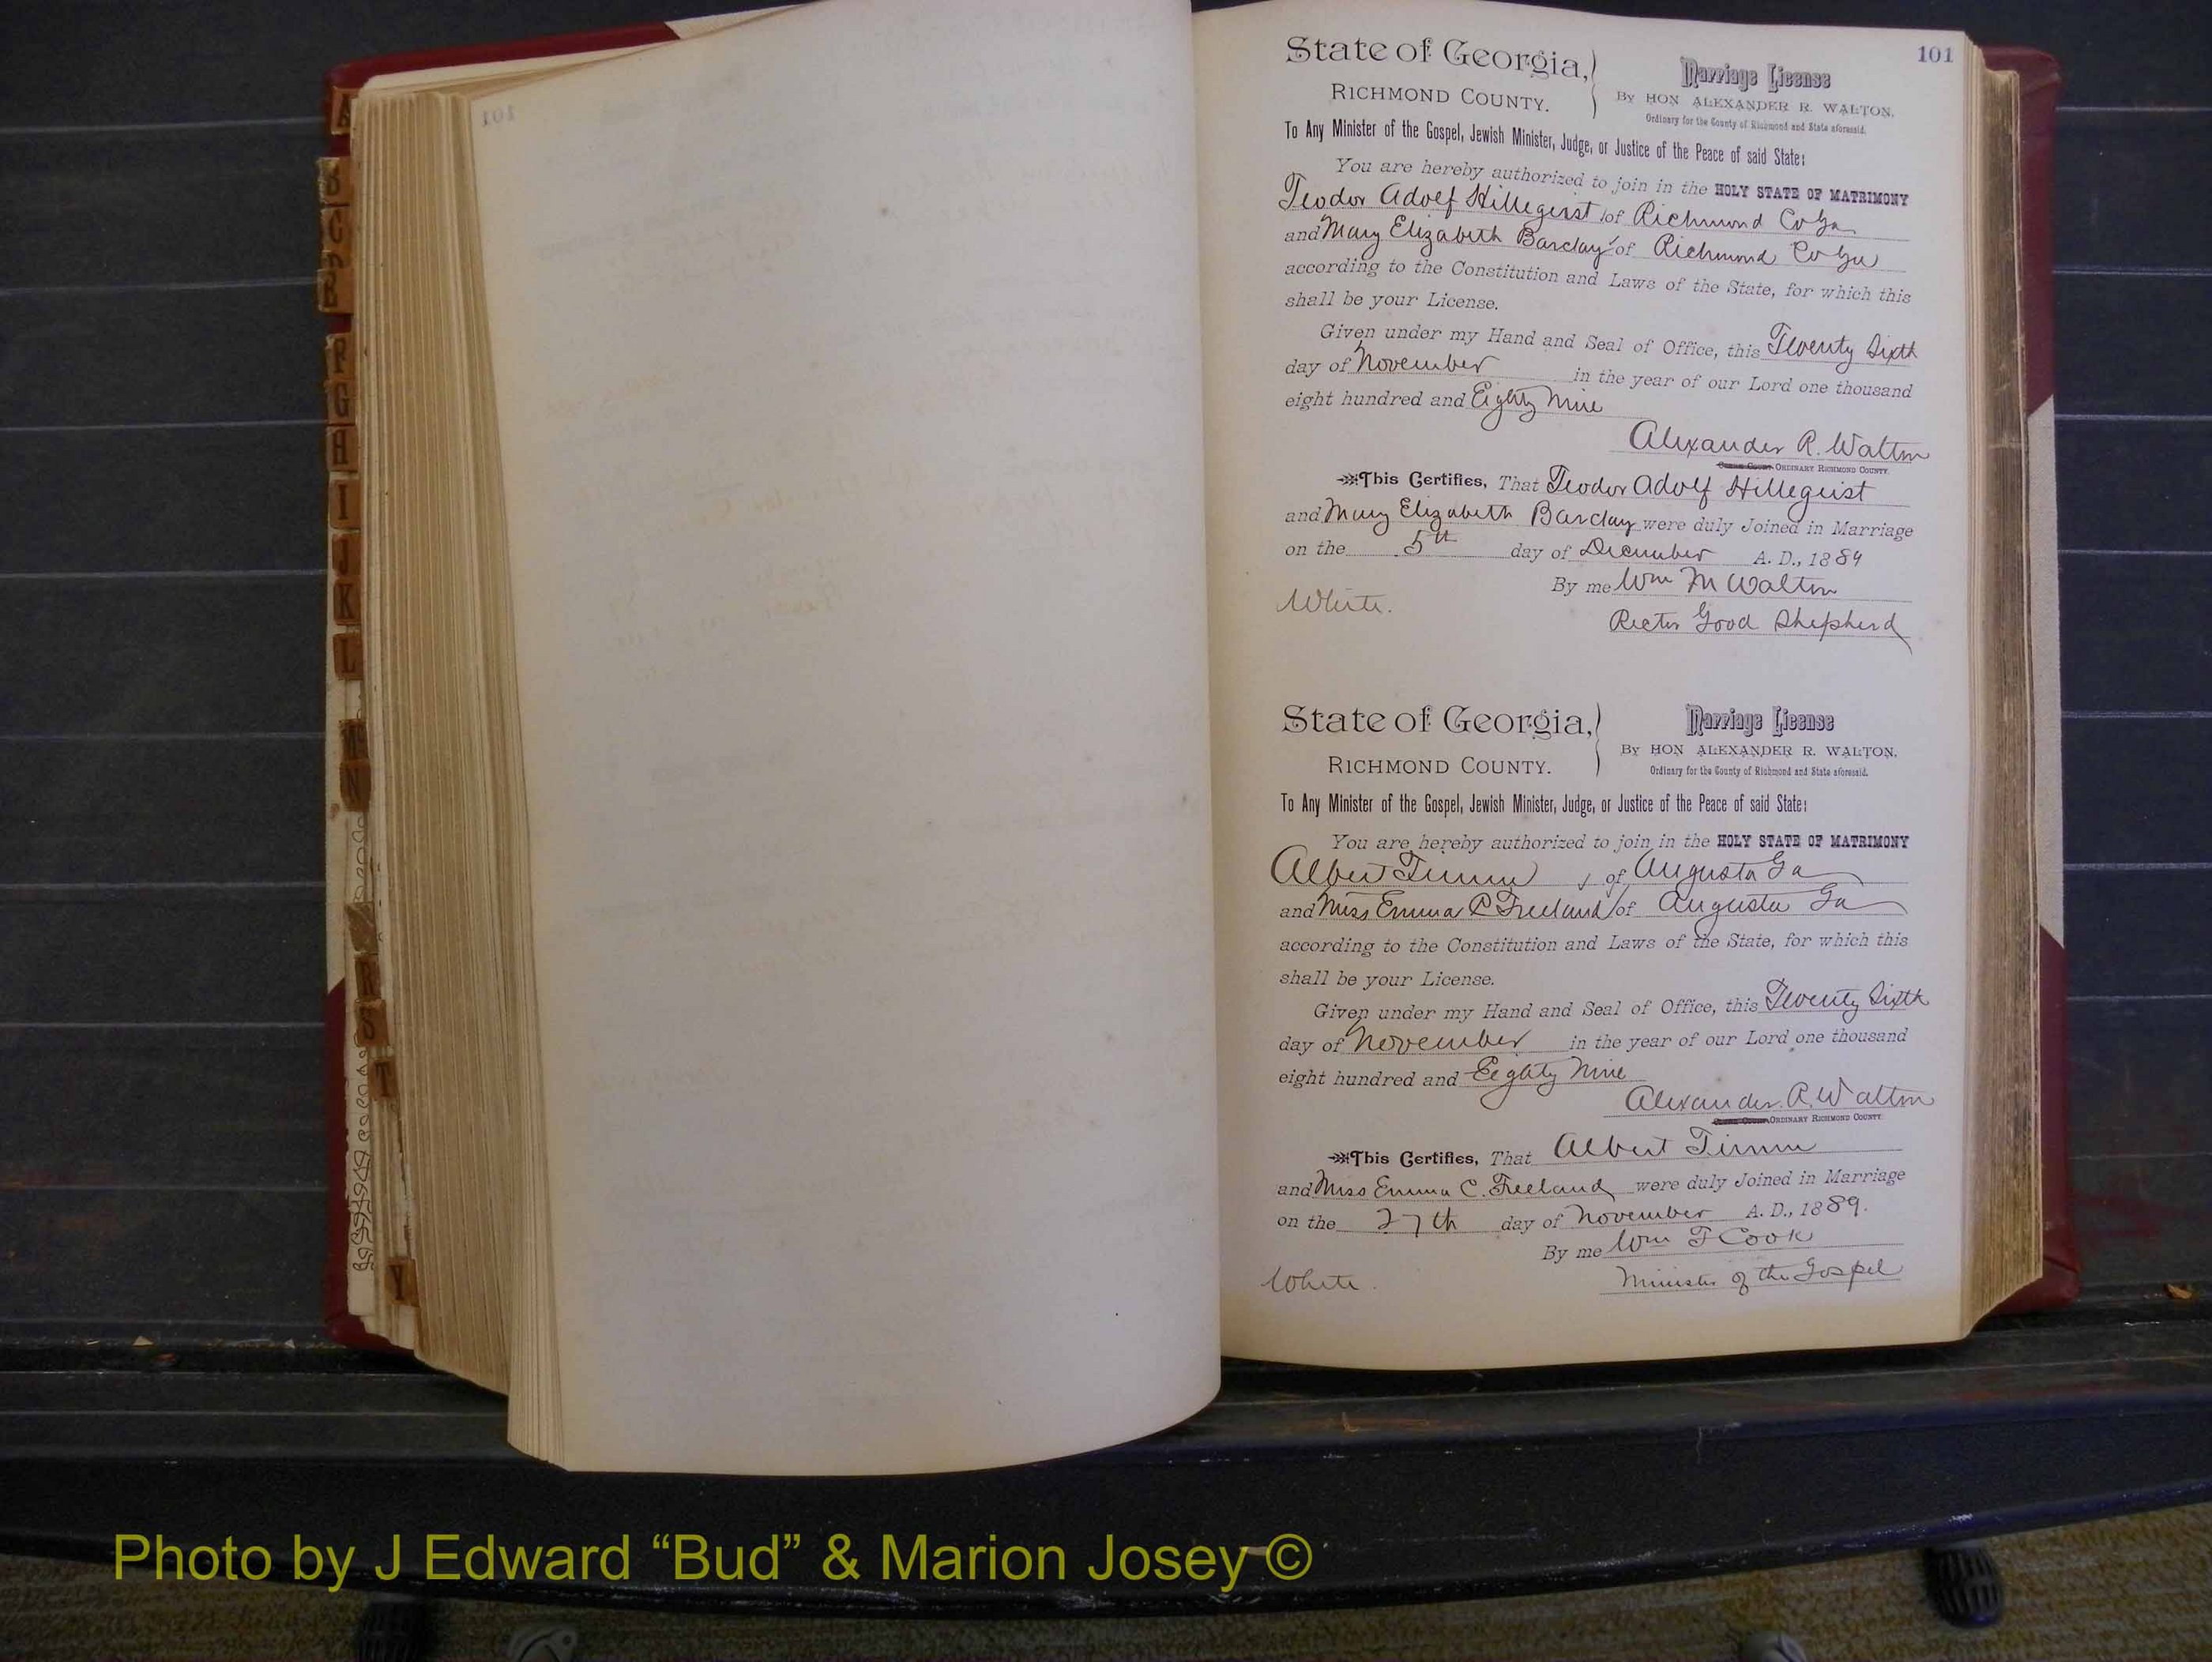 101
State of Georgia,
RICHMOND COUNTY.
Marriage License
By HON ALEXANDER R. WALTON,
Ordinary for the County of Richmond and State aforesaid.
To Any Minister of the Gospel, Jewish Minister, Judge, or Justice of the Peace of said State:
You are hereby authorized to join in the HOLY STATE OF MATRIMONY
Teodor Adolf Hillegeist of Richmond Co Ga
and Mary Elizabeth Barclay of Richmond Co Ga
according to the Constitution and Laws of the State, for which this
shall be your License.
Given under my Hand and Seal of Office, this Twenty Sixth
day of November in the year of our Lord one thousand
eight hundred and Eighty Nine
Alexander R. Walton
ORDINARY RICHMOND COUNTY.
This Certifies, That Teodor Adolf Hillegeist
and Mary Elizabeth Barclay were duly Joined in Marriage
on the 5th day of December A. D., 1889
By me Wm M Walton
White.
Rector Good Shepherd
State of Georgia,
RICHMOND COUNTY.
Marriage License
By HON ALEXANDER R. WALTON,
Ordinary for the County of Richmond and State aforesaid.
To Any Minister of the Gospel, Jewish Minister, Judge, or Justice of the Peace of said State:
You are hereby authorized to join in the HOLY STATE OF MATRIMONY
Albert Timm, of Augusta Ga
and Miss Emma C Freeland of Augusta Ga
according to the Constitution and Laws of the State, for which this
shall be your License.
Given under my Hand and Seal of Office, this Twenty Sixth
day of November in the year of our Lord one thousand
eight hundred and Eighty Nine
Alexander R. Walton
ORDINARY RICHMOND COUNTY.
This Certifies, That Albert Timm
and Miss Emma C. Freeland were duly Joined in Marriage
on the 27th day of November A. D., 1889.
By me Wm F Cook
White.
Minister of the Gospel
A
B
C
F
G
H
I
J
K
L
N
R
S
T
Y
Photo by J Edward “Bud” & Marion Josey ©